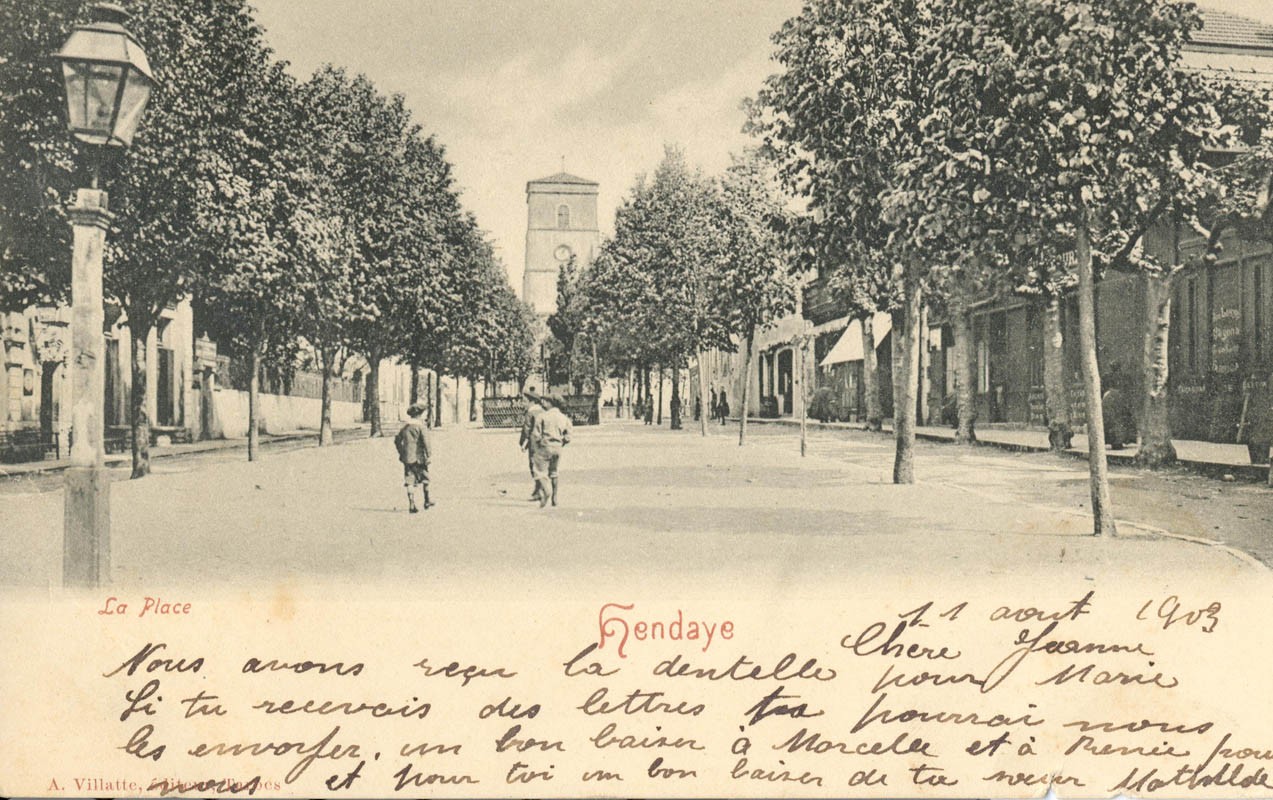 La Place
Hendaye
11 aout 1903
Chère Jeanne
Nous avons reçu la dentelle pour Marie
Si tu recevais des lettres tu pourrai nous
les envoyer. un bon baiser à Marcelle et à Renée pour
nous et pour toi un bon baiser de ta sœur Mathilde
A. Villatte, éditeur, Tarbes